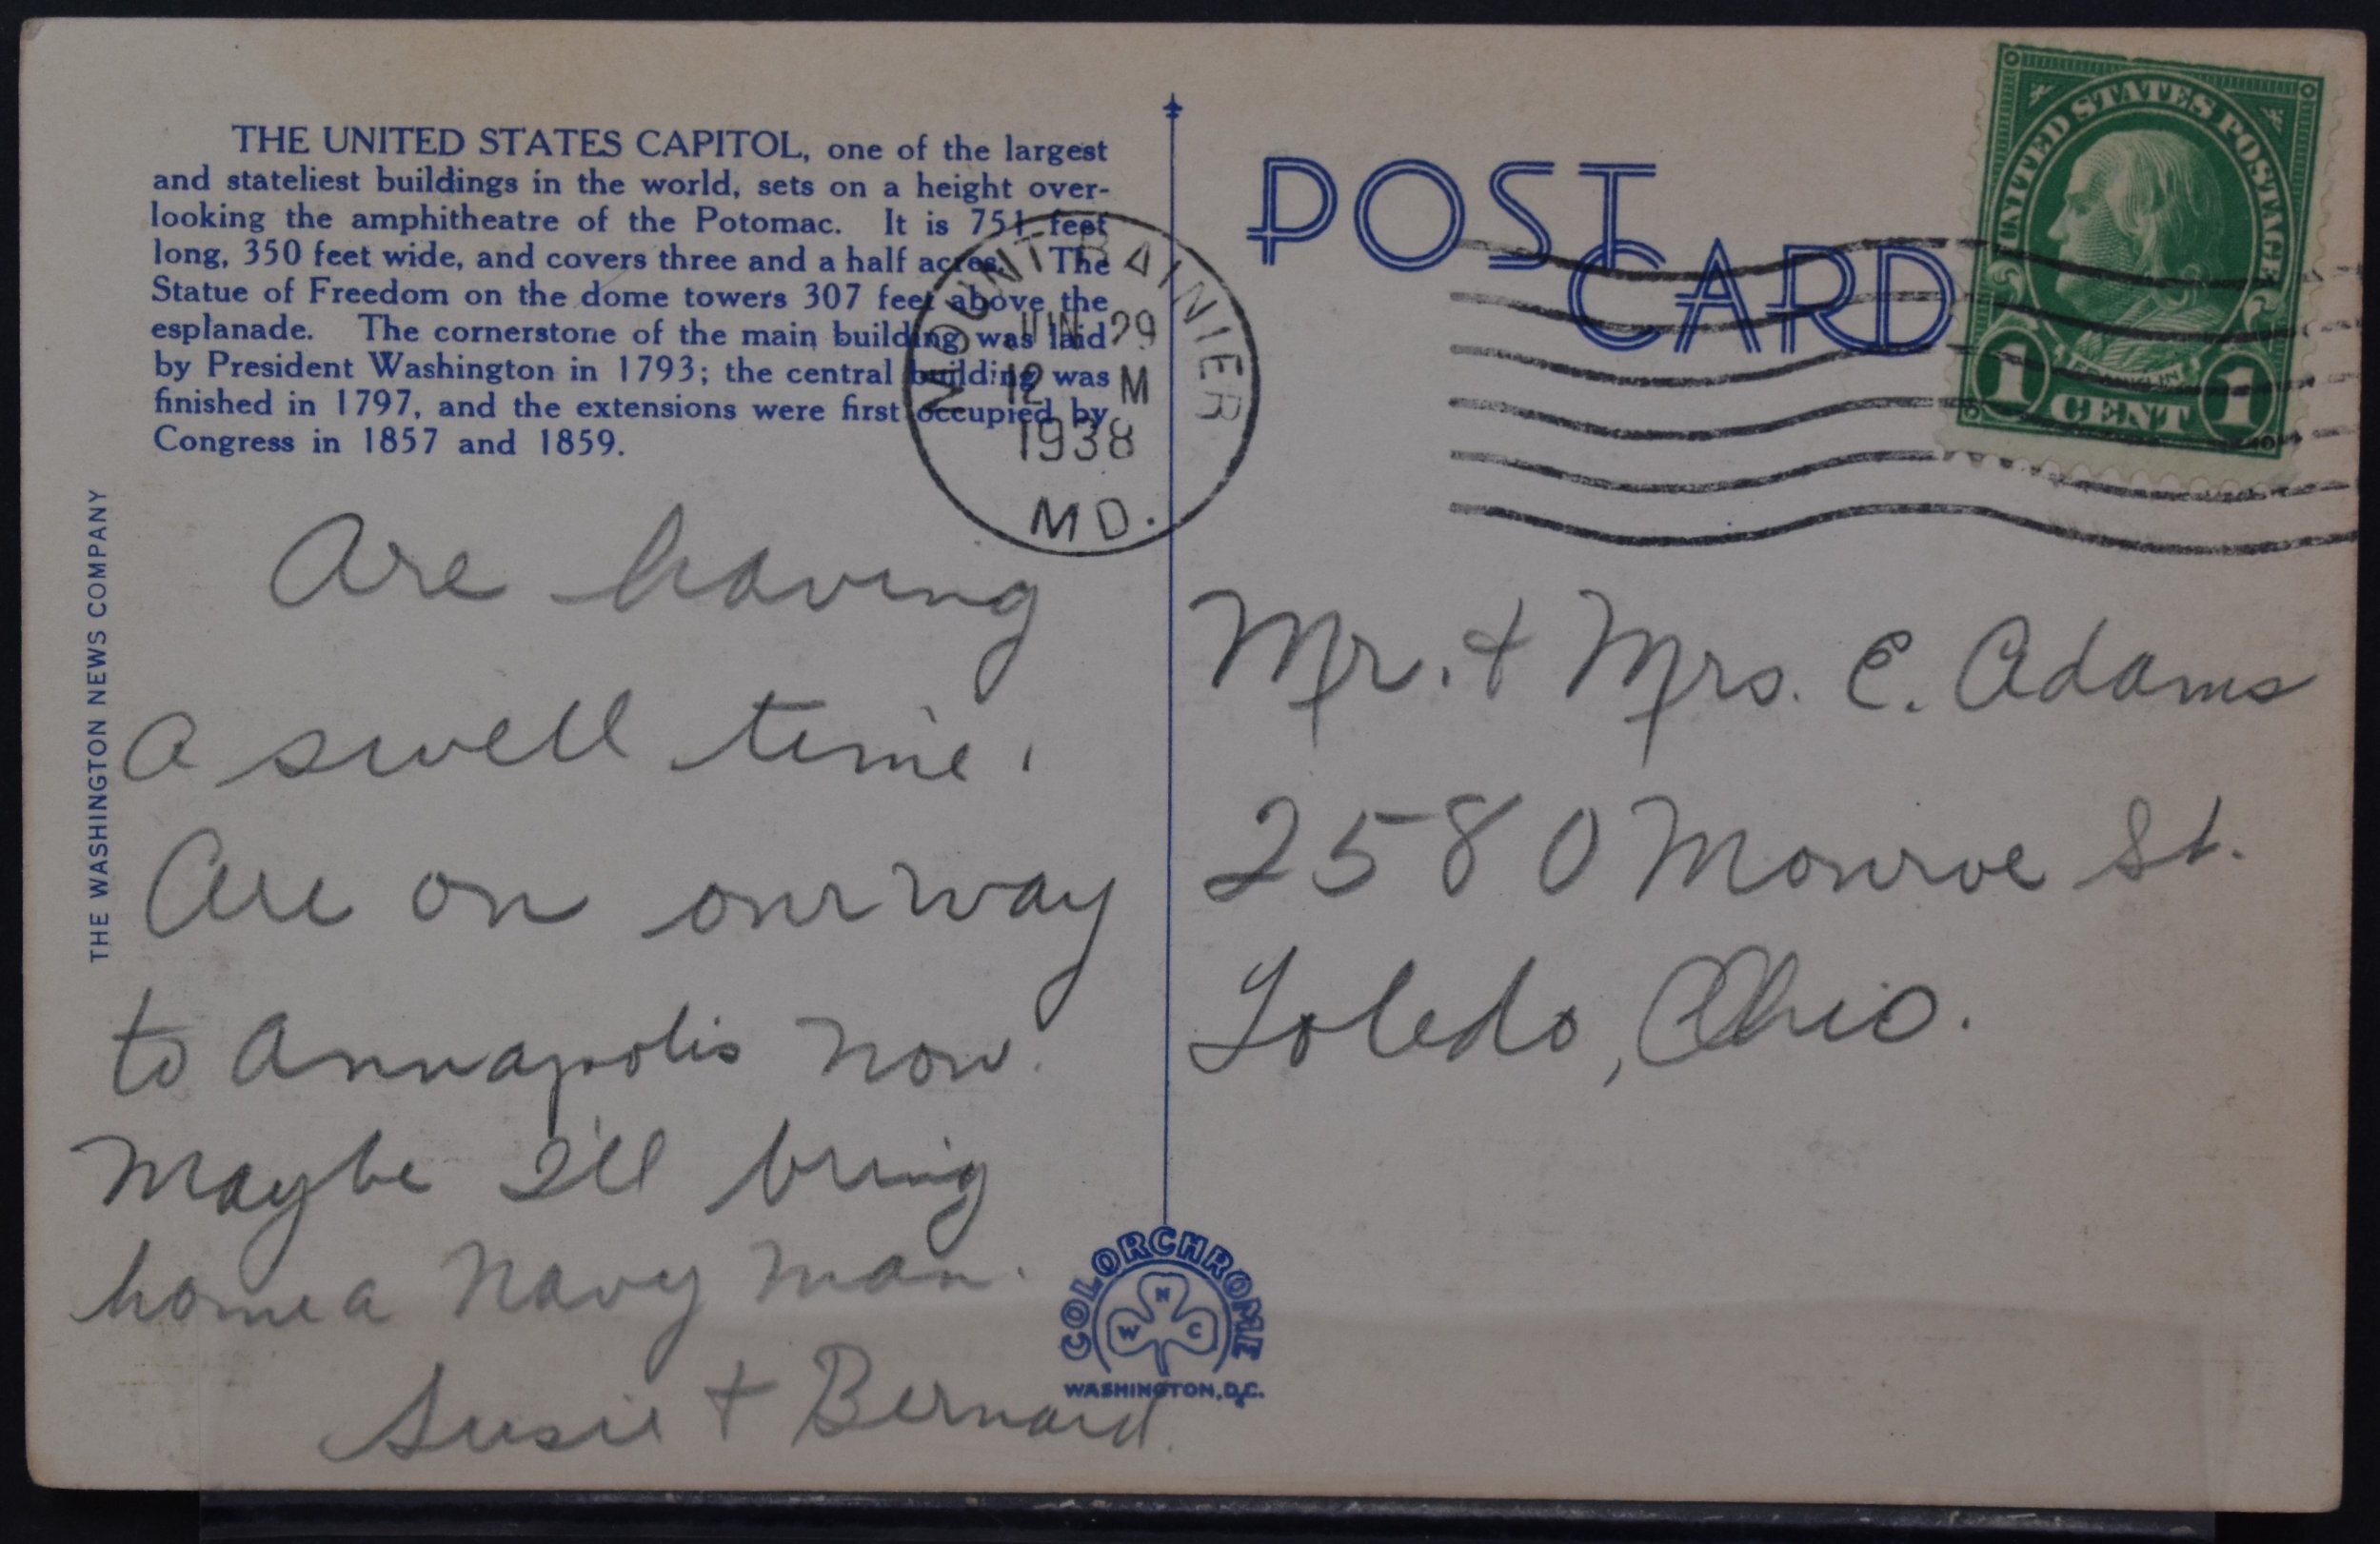 THE UNITED STATES CAPITOL, one of the largest
and stateliest buildings in the world, sets on a height over-
looking the amphitheatre of the Potomac. It is 751 feet
long, 350 feet wide, and covers three and a half acres. The
Statue of Freedom on the dome towers 307 feet above the
esplanade. The cornerstone of the main building was laid
by President Washington in 1793; the central building was
finished in 1797, and the extensions were first occupied by
Congress in 1857 and 1859.
THE WASHINGTON NEWS COMPANY
Are having
a swell time.
Are on our way
to Annapolis now.
Maybe I'll bring
home a Navy man.
Susie + Bernard.
MOUNT RAINIER
JUN 29
12 M
1938
MD.
POST
CARD
UNITED STATES POSTAGE
FRANKLIN
1 CENT 1
Mr. + Mrs. E. Adams
2580 Monroe St.
Toledo, Ohio.
COLORCHROME
N
W C
WASHINGTON, D.C.